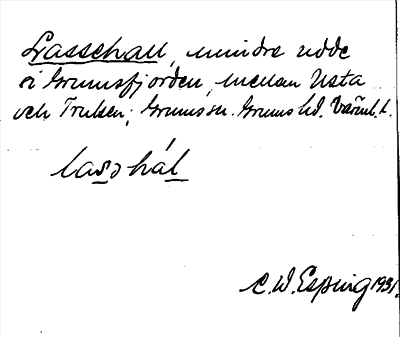 Lasschall, mindre udde
i Grumsfjorden, mellan Usta
och Trulsen; Grums sn. Grums hd. Värml. l.
lasshál
C. W. Esping 1931.